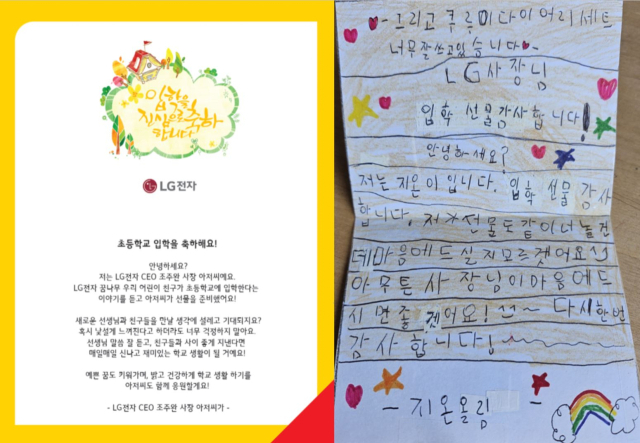 입학을
진심으로 축하
합니다
LG전자
초등학교 입학을 축하해요!
안녕하세요?
저는 LG전자 CEO 조주완 사장 아저씨예요.
LG전자 꿈나무 우리 어린이 친구가 초등학교에 입학한다는
이야기를 듣고 아저씨가 선물을 준비했어요!
새로운 선생님과 친구들을 만날 생각에 설레고 기대되지요?
혹시 낯설게 느껴진다고 하더라도 너무 걱정하지 말아요.
선생님 말씀 잘 듣고, 친구들과 사이 좋게 지낸다면
매일매일 신나고 재미있는 학교 생활이 될 거예요!
예쁜 꿈도 키워가며, 밝고 건강하게 학교 생활 하기를
아저씨도 함께 응원할게요!
- LG전자 CEO 조주완 사장 아저씨가 -
- 그리고 쿠루미다이어리세트
너무잘쓰고있습니다
LG사장님
입학 선물감사합니다!
안녕하세요?
저는 지온이입니다. 입학 선물 감사
합니다. 저가선물도같이너놀건
데마음에드실지모르겟어요
아무튼 사장님이마음에드
시면좋겠어요! ~ 다시한번
감사합니다!
- 지온올림 -